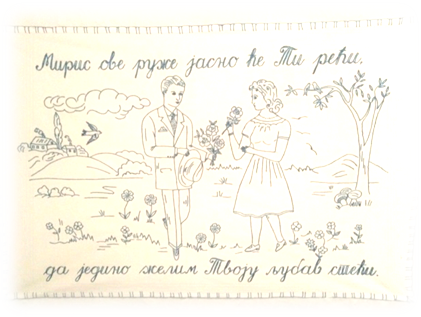 Мирис ове руже јасно ће Ти рећи.
да једино желим Твоју љубав стећи.